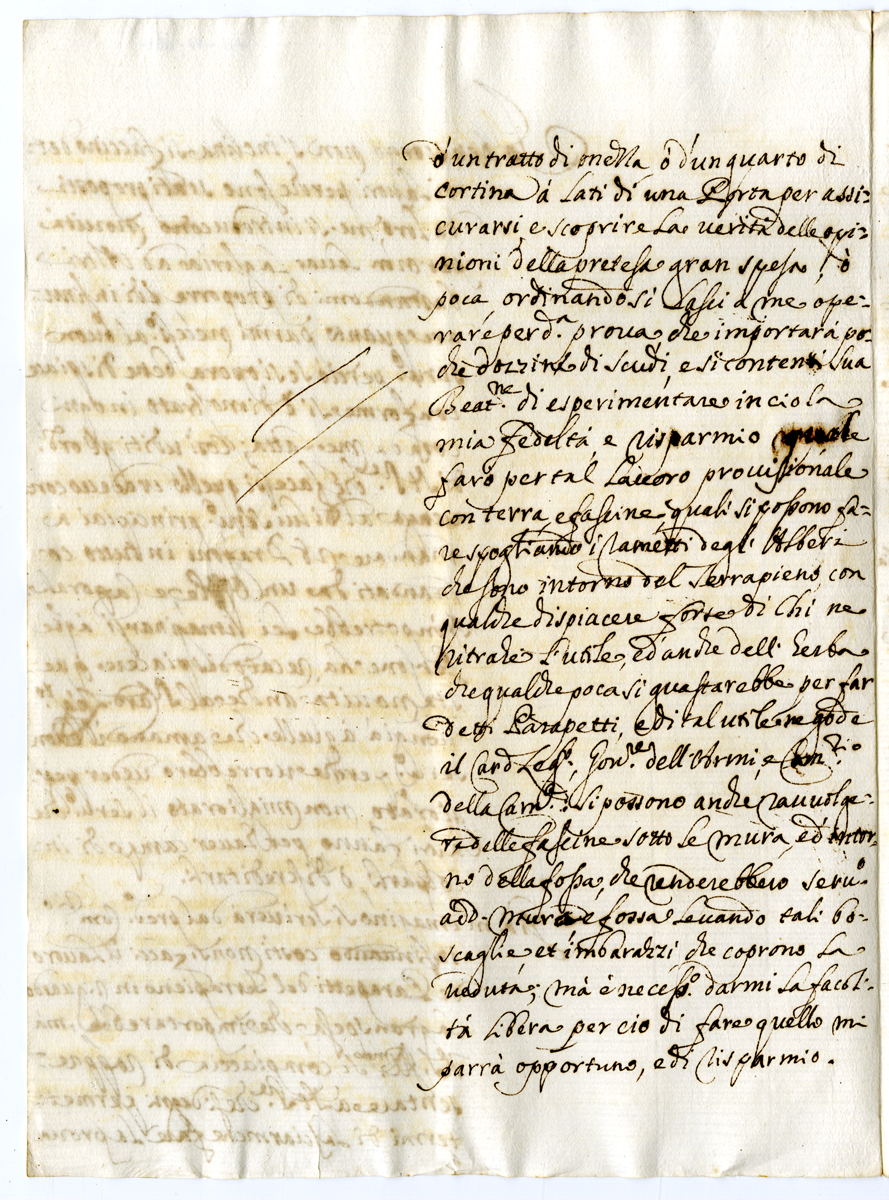 d'un tratto di onella, ò d'un quarto di
Cortina à Lati di una Porta per assi:
curarsi, e scoprire La verità delle opi:
nioni della pretesa gran spesa, ò
poca, ordinandosi Lasci à me ope:
rare per d.ᵃ prova, che importarà po:
che dozzine di scudi, e si contenti Sua
Beat.ⁿᵉ di esperimentare in ciò la
mia fedeltà, e risparmio quale
farò per tal Lavoro provisionale
con terra, e fascine, quali si possono fa:
re spogliando i rametti degl'Alberi
che sono intorno del Terrapieno, con
qualche dispiacere forse di chi ne
ritrahe l'utile, ed anche dell'herba
che qualche poca si guastarebbe per far
detti Parapetti, e di tal utile ne gode
il Card. Leg.º, Gov.ʳᵉ dell'Armi, e
della Cam.ᵃ: si possono anche ravvolge:
re delle fascine sotto Le mura, ed intor:
no della fossa, che renderebbero serv.º
add. Mura e fossa Levando tali bo:
scaglie et imbarazzi che coprono La
veduta; mà è necess.º darmi La facol:
tà Libera per ciò di fare quello mi
parrà opportuno, e di risparmio.